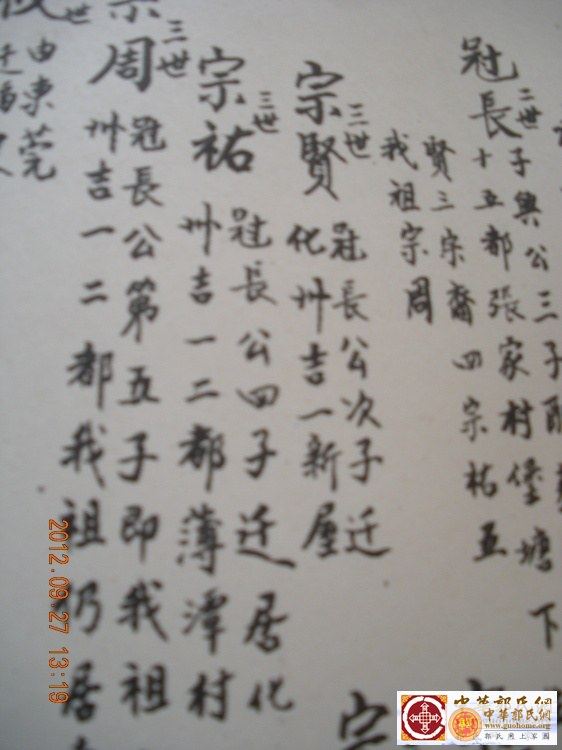 冠長 二世
子與公三子
十五都張家村堡塘下
賢三宗裔四宗祐五
我祖宗周
宗賢 三世
冠長公次子迁
化卅吉一新屋
宗祐 三世
冠長公四子迁居化
卅吉一二都薄潭村
宗周 三世
冠長公第五子即我祖
卅吉一二都我祖仍居
由東莞
宗
2012.09.27 13:19
中華郭氏網
中華郭氏網
www.guohome.org
郭氏網上家園